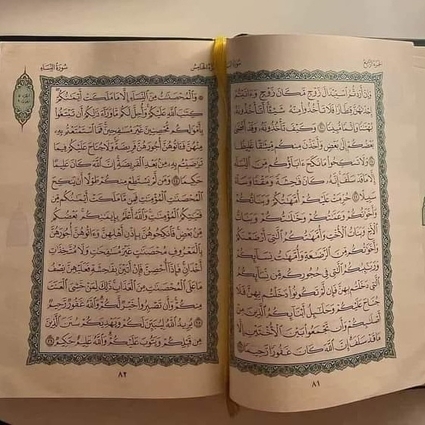 الجزء الرابع
سورة النساء
وَإِنْ أَرَدتُّمُ ٱسْتِبْدَالَ زَوْجٍ مَّكَانَ زَوْجٍ وَءَاتَيْتُمْ
إِحْدَىٰهُنَّ قِنطَارًا فَلَا تَأْخُذُوا۟ مِنْهُ شَيْـًٔا أَتَأْخُذُونَهُۥ
بُهْتَٰنًا وَإِثْمًا مُّبِينًا ٢٠ وَكَيْفَ تَأْخُذُونَهُۥ وَقَدْ أَفْضَىٰ
بَعْضُكُمْ إِلَىٰ بَعْضٍ وَأَخَذْنَ مِنكُم مِّيثَٰقًا غَلِيظًا
٢١ وَلَا تَنكِحُوا۟ مَا نَكَحَ ءَابَآؤُكُم مِّنَ ٱلنِّسَآءِ إِلَّا
مَا قَدْ سَلَفَ إِنَّهُۥ كَانَ فَٰحِشَةً وَمَقْتًا وَسَآءَ
سَبِيلًا ٢٢ حُرِّمَتْ عَلَيْكُمْ أُمَّهَٰتُكُمْ وَبَنَاتُكُمْ
وَأَخَوَٰتُكُمْ وَعَمَّٰتُكُمْ وَخَٰلَٰتُكُمْ وَبَنَاتُ
ٱلْأَخِ وَبَنَاتُ ٱلْأُخْتِ وَأُمَّهَٰتُكُمُ ٱلَّٰتِىٓ أَرْضَعْنَكُمْ
وَأَخَوَٰتُكُم مِّنَ ٱلرَّضَٰعَةِ وَأُمَّهَٰتُ نِسَآئِكُمْ
وَرَبَٰٓئِبُكُمُ ٱلَّٰتِى فِى حُجُورِكُم مِّن نِّسَآئِكُمُ
ٱلَّٰتِى دَخَلْتُم بِهِنَّ فَإِن لَّمْ تَكُونُوا۟ دَخَلْتُم بِهِنَّ فَلَا
جُنَاحَ عَلَيْكُمْ وَحَلَٰٓئِلُ أَبْنَآئِكُمُ ٱلَّذِينَ مِنْ
أَصْلَٰبِكُمْ وَأَن تَجْمَعُوا۟ بَيْنَ ٱلْأُخْتَيْنِ إِلَّا
مَا قَدْ سَلَفَ إِنَّ ٱللَّهَ كَانَ غَفُورًا رَّحِيمًا ٢٣
٨١
الخامس
سورة النساء
وَٱلْمُحْصَنَٰتُ مِنَ ٱلنِّسَآءِ إِلَّا مَا مَلَكَتْ أَيْمَٰنُكُمْ
كِتَٰبَ ٱللَّهِ عَلَيْكُمْ وَأُحِلَّ لَكُم مَّا وَرَآءَ ذَٰلِكُمْ أَن تَبْتَغُوا۟
بِأَمْوَٰلِكُم مُّحْصِنِينَ غَيْرَ مُسَٰفِحِينَ فَمَا ٱسْتَمْتَعْتُم بِهِۦ
مِنْهُنَّ فَـَٔاتُوهُنَّ أُجُورَهُنَّ فَرِيضَةً وَلَا جُنَاحَ عَلَيْكُمْ فِيمَا
تَرَٰضَيْتُم بِهِۦ مِنۢ بَعْدِ ٱلْفَرِيضَةِ إِنَّ ٱللَّهَ كَانَ عَلِيمًا
حَكِيمًا ٢٤ وَمَن لَّمْ يَسْتَطِعْ مِنكُمْ طَوْلًا أَن يَنكِحَ
ٱلْمُحْصَنَٰتِ ٱلْمُؤْمِنَٰتِ فَمِن مَّا مَلَكَتْ أَيْمَٰنُكُم مِّن
فَتَيَٰتِكُمُ ٱلْمُؤْمِنَٰتِ وَٱللَّهُ أَعْلَمُ بِإِيمَٰنِكُم بَعْضُكُم
مِّنۢ بَعْضٍ فَٱنكِحُوهُنَّ بِإِذْنِ أَهْلِهِنَّ وَءَاتُوهُنَّ أُجُورَهُنَّ
بِٱلْمَعْرُوفِ مُحْصَنَٰتٍ غَيْرَ مُسَٰفِحَٰتٍ وَلَا مُتَّخِذَٰتِ
أَخْدَانٍ فَإِذَآ أُحْصِنَّ فَإِنْ أَتَيْنَ بِفَٰحِشَةٍ فَعَلَيْهِنَّ نِصْفُ
مَا عَلَى ٱلْمُحْصَنَٰتِ مِنَ ٱلْعَذَابِ ذَٰلِكَ لِمَنْ خَشِىَ ٱلْعَنَتَ
مِنكُمْ وَأَن تَصْبِرُوا۟ خَيْرٌ لَّكُمْ وَٱللَّهُ غَفُورٌ رَّحِيمٌ
٢٥ يُرِيدُ ٱللَّهُ لِيُبَيِّنَ لَكُمْ وَيَهْدِيَكُمْ سُنَنَ ٱلَّذِينَ
مِن قَبْلِكُمْ وَيَتُوبَ عَلَيْكُمْ وَٱللَّهُ عَلِيمٌ حَكِيمٌ ٢٦
٨٢